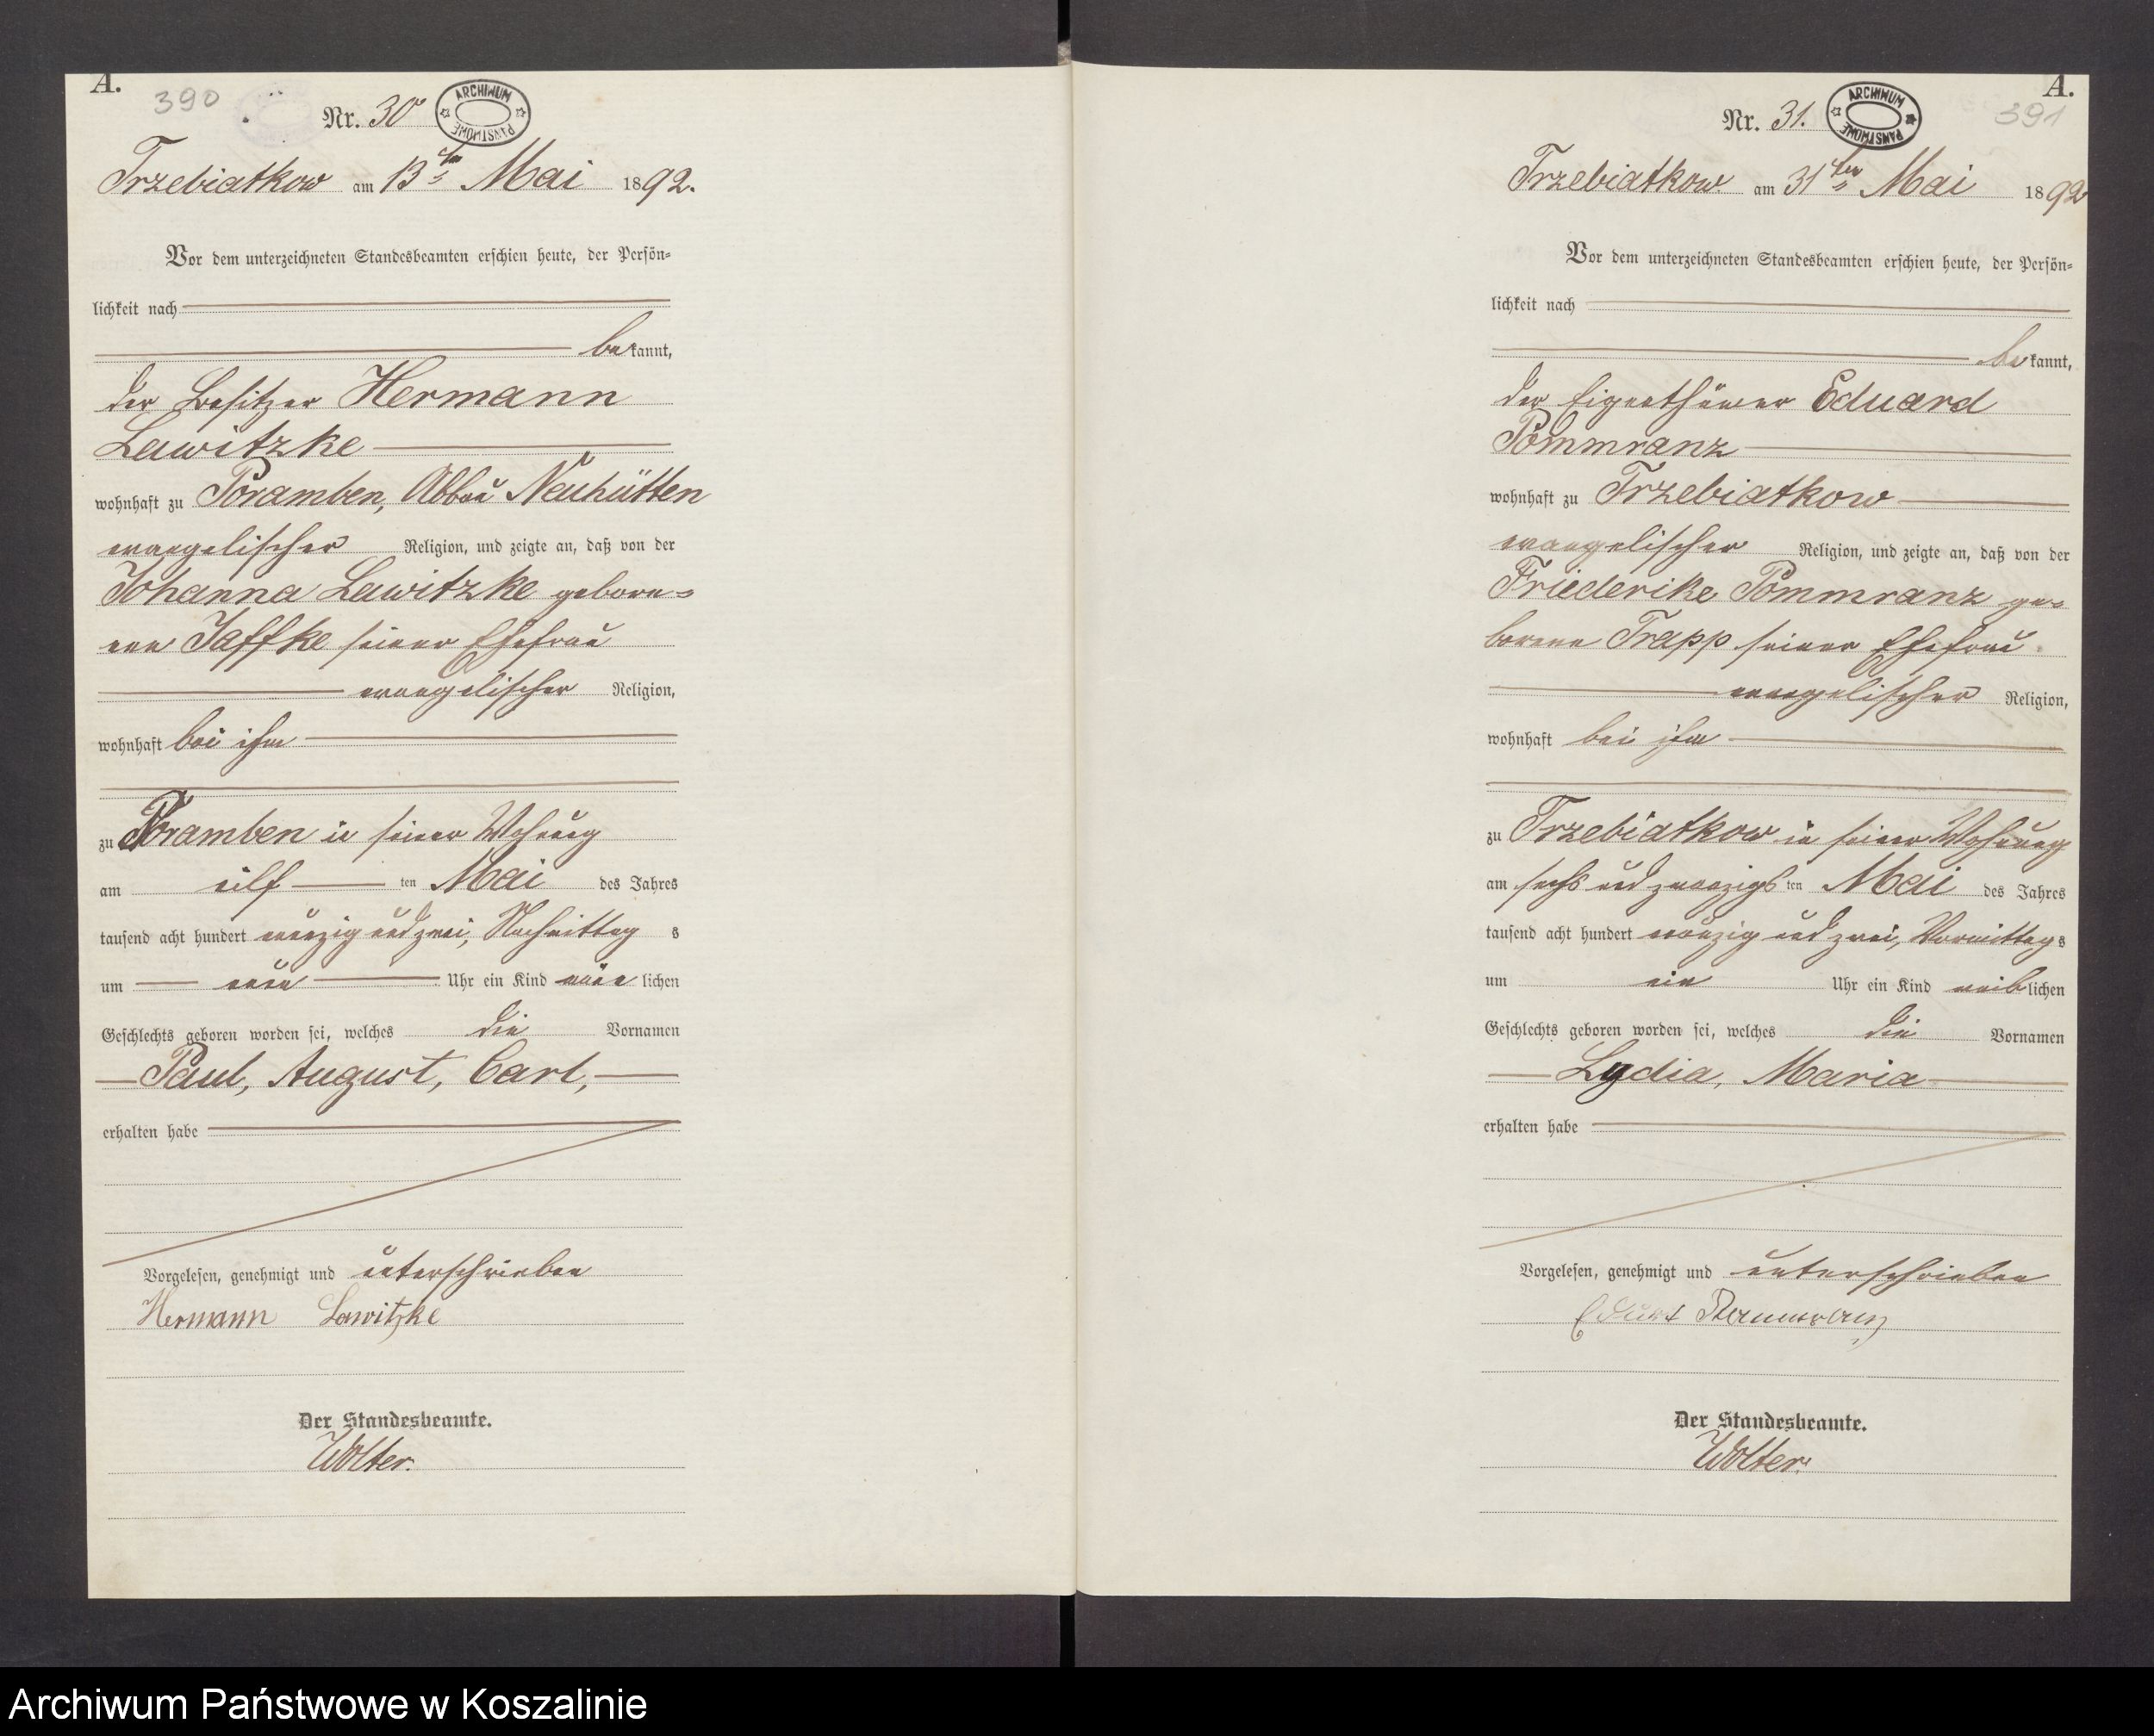 A.
390
Nr. 30
ARCHIWUM PAŃSTWOWE
Trzebiatkow am 13ten Mai 1892.
Vor dem unterzeichneten Standesbeamten erschien heute, der Persön-
lichkeit nach
bekannt,
der Besitzer Hermann
Lawitzke
wohnhaft zu Poramben, Abbau Neuhütten
evangelischer Religion, und zeigte an, daß von der
Johanna Lawitzke gebore-
nen Jaffke seiner Ehefrau
evangelischer Religion,
wohnhaft bei ihm
zu Poramben in seiner Wohnung
am eilf ten Mai des Jahres
tausend acht hundert neunzig und zwei, Nachmittag s
um neun Uhr ein Kind männlichen
Geschlechts geboren worden sei, welches die Vornamen
Paul, August, Carl,
erhalten habe
Vorgelesen, genehmigt und unterschrieben
Hermann Lawitzke
Der Standesbeamte.
Wolter.
A.
391
Nr. 31.
ARCHIWUM PAŃSTWOWE
Trzebiatkow am 31ten Mai 1892
Vor dem unterzeichneten Standesbeamten erschien heute, der Persön-
lichkeit nach
bekannt,
der Eigenthümer Eduard
Pommranz
wohnhaft zu Trzebiatkow
evangelischer Religion, und zeigte an, daß von der
Friederike Pommranz ge-
borene Trapp seiner Ehefrau
evangelischer Religion,
wohnhaft bei ihm
zu Trzebiatkow in seiner Wohnung
am sechs und zwanzigsten Mai des Jahres
tausend acht hundert neunzig und zwei, Vormittags
um ein Uhr ein Kind weiblichen
Geschlechts geboren worden sei, welches die Vornamen
Lydia, Maria
erhalten habe
Vorgelesen, genehmigt und unterschrieben
Der Standesbeamte.
Wolter.
Archiwum Państwowe w Koszalinie